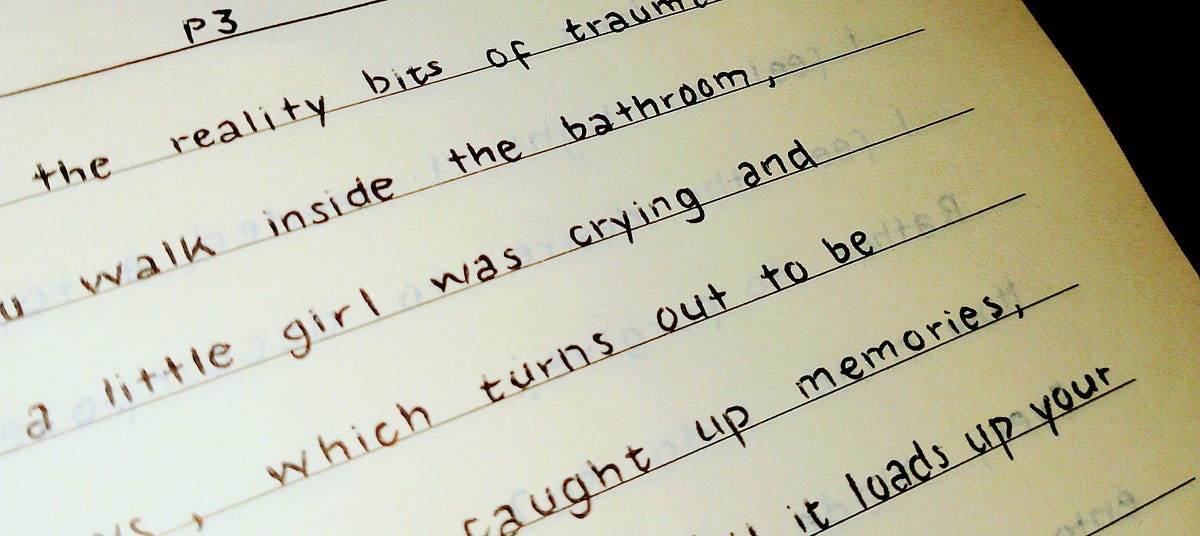 P3
the reality bits of
walk inside the bathroom,
a little girl was crying and
which turns out to be
caught up memories,
it loads up your